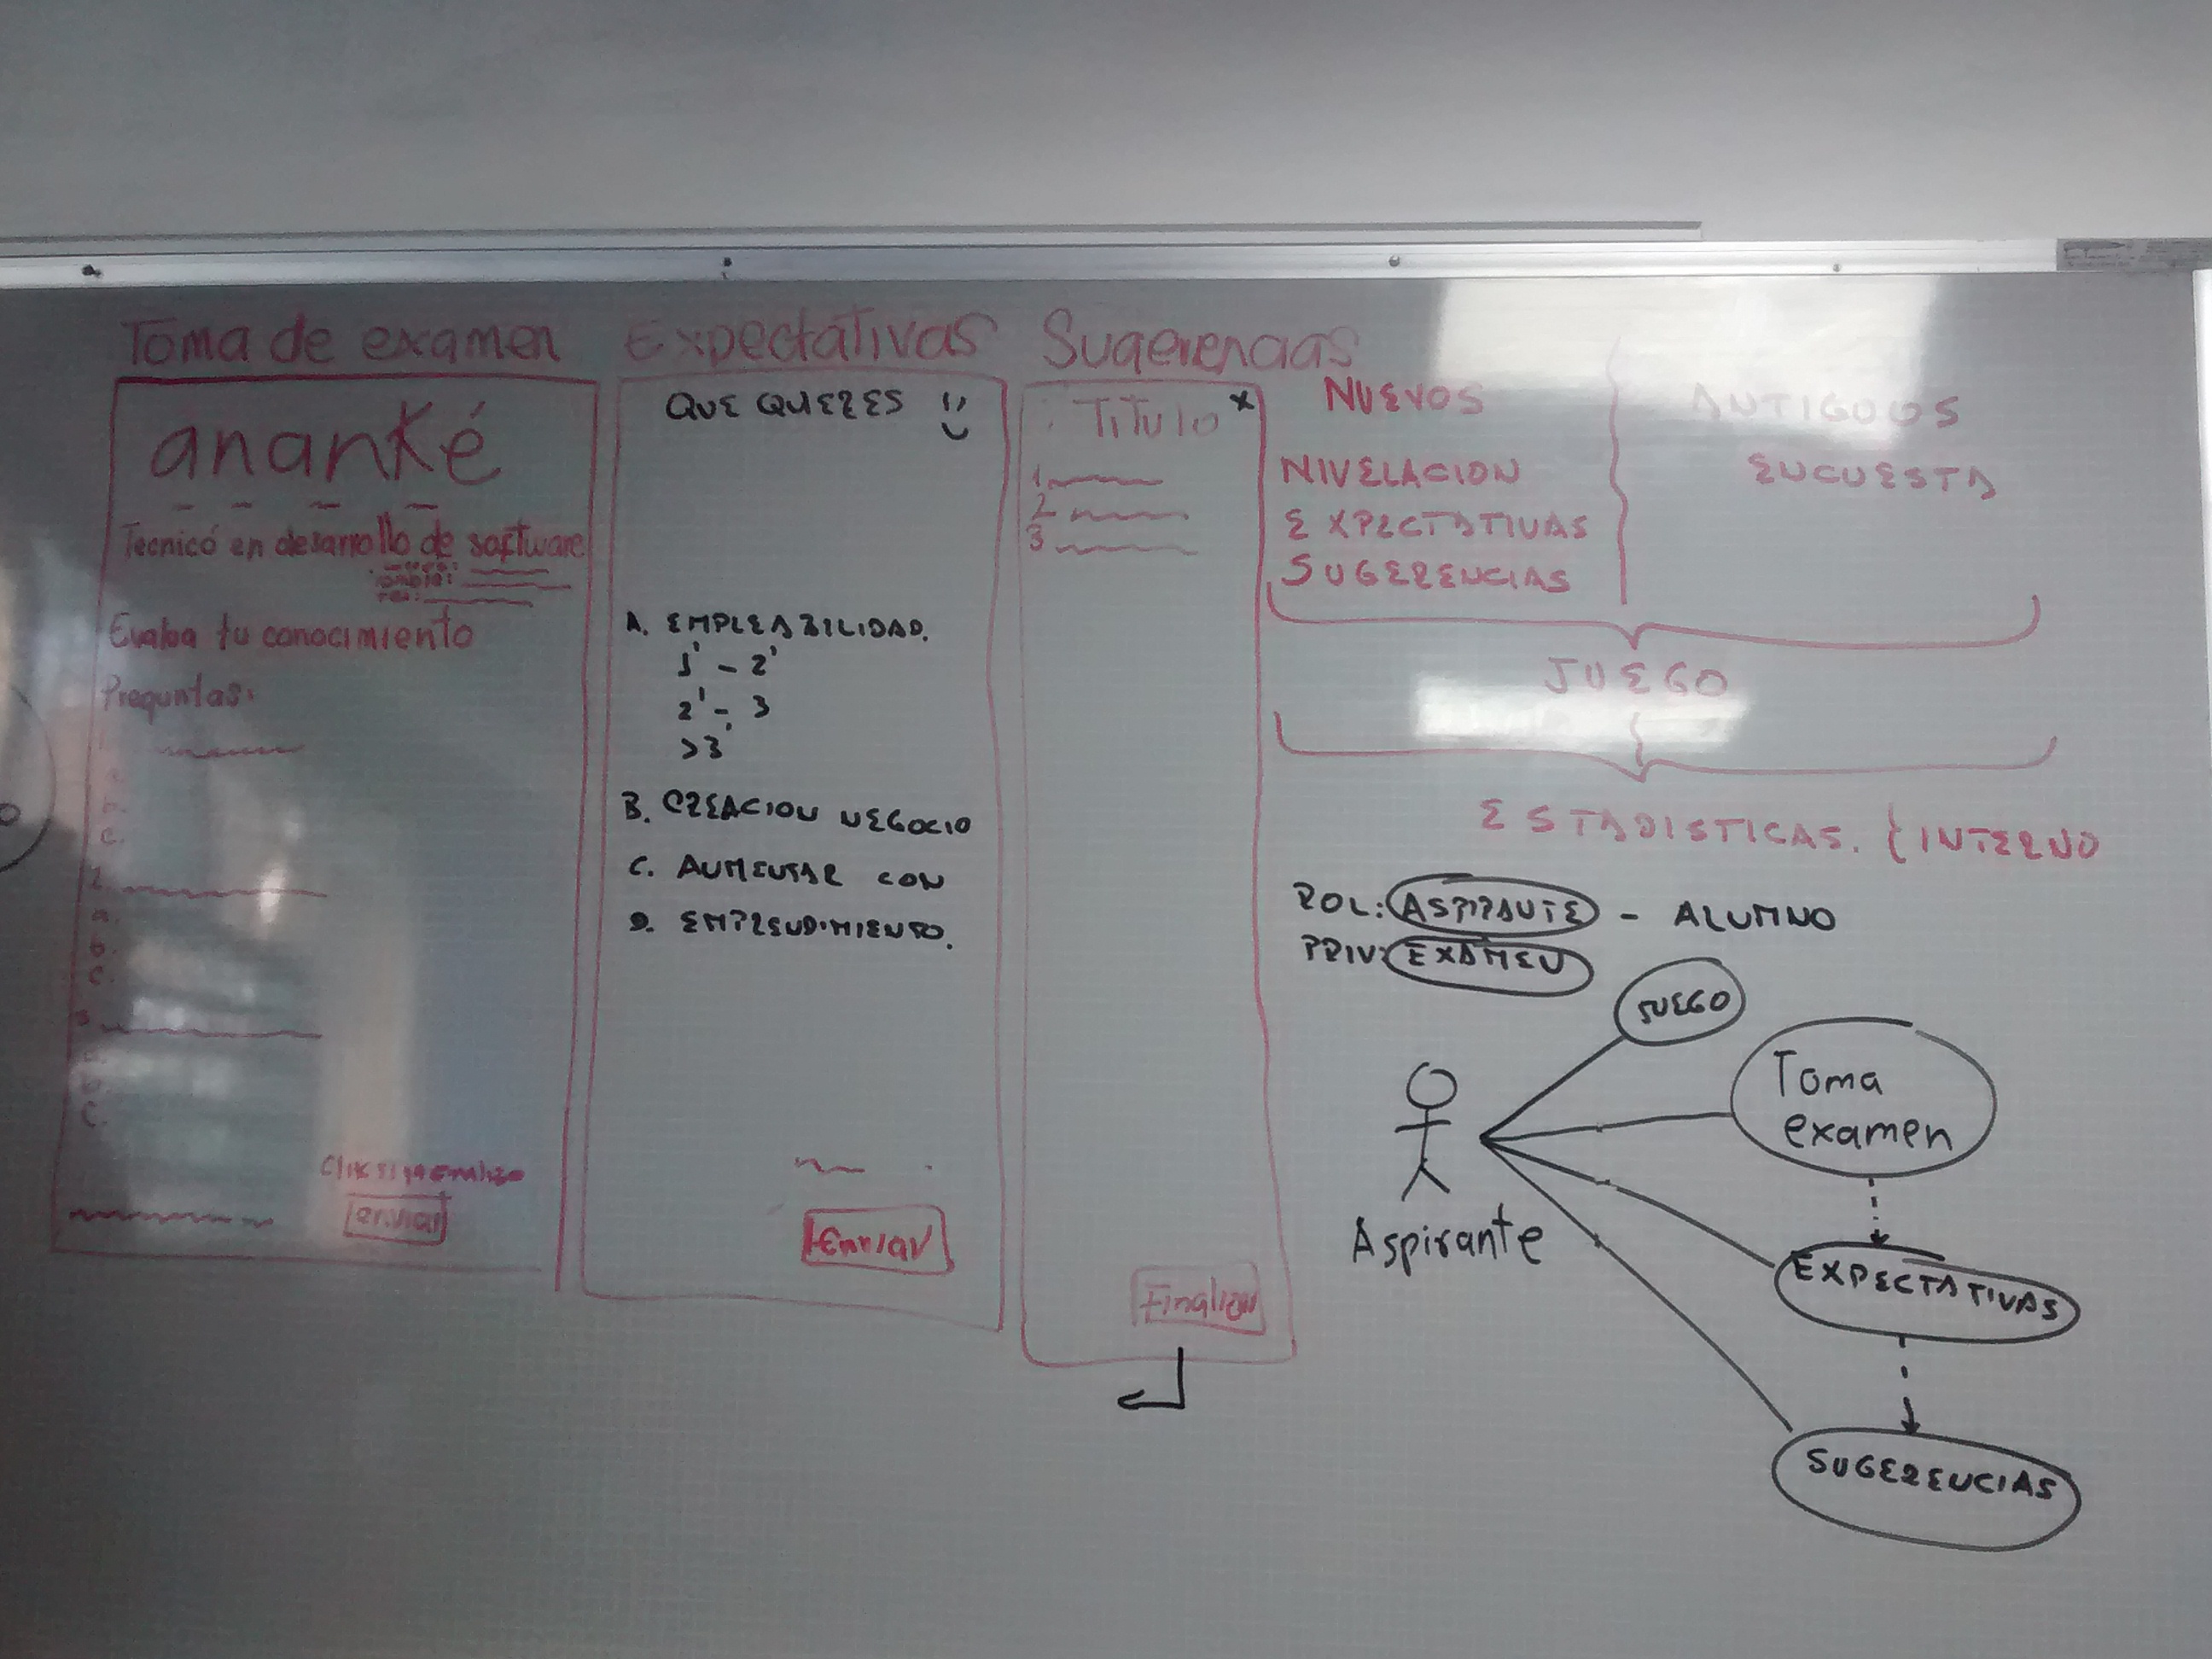 Toma de examen
ananké
Tecnicó en desarrollo de software
Evalua tu conocimiento
Preguntas:
a.
b.
c.
2.
a.
b.
c.
3
a.
b.
c.
enviar
Expectativas
QUE QUERES
A. EMPLEABILIDAD.
1' - 2'
2' - 3
>3'
B. CREACION NEGOCIO
C. AUMENTAR CON
D. EMPRENDIMIENTO.
Enviar
Sugerencias
Titulo x
1.
2
3
Finalizar
NUEVOS
NIVELACION
EXPECTATIVAS
SUGERENCIAS
ANTIGUOS
ENCUESTA
JUEGO
ESTADISTICAS. { INTERNO
ROL: ASPIRANTE - ALUMNO
PRIV: EXAMEN
JUEGO
Toma
examen
Aspirante
EXPECTATIVAS
SUGERENCIAS